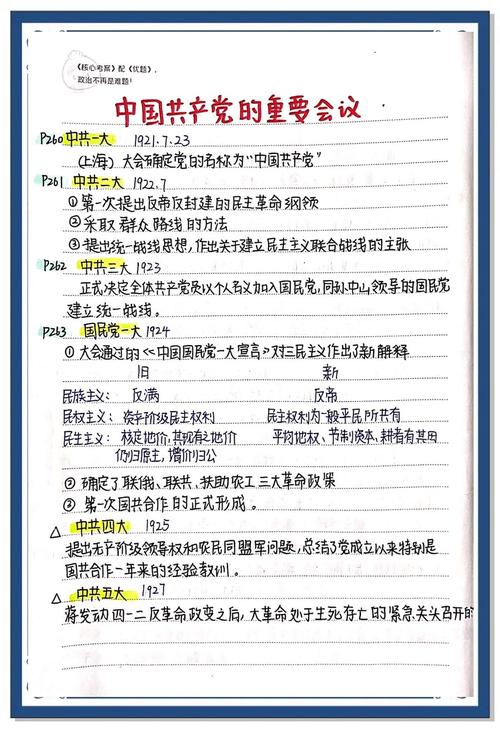 《核心考案》配《优题》，
政治不再是难题！
中国共产党的重要会议
P260 中共一大 1921.7.23
(上海) 大会确定党的名称为"中国共产党"
P261 中共二大 1922.7
①第一次提出反帝反封建的民主革命纲领
②采取群众路线的方法
③提出统一战线思想,作出关于建立民主主义联合战线的主张
P262 中共三大 1923
正式决定全体共产党员以个人名义加入国民党,同孙中山领导的国民党
建立统一战线。
P263 国民党一大 1924
①大会通过的《中国国民党一大宣言》对三民主义作出了新解释
旧 新
民族主义: 反满 反帝
民权主义: 资产阶级民主权利 民主权利为一般平民所共有
民生主义: 核定地价,其现有之地价 平均地权、节制资本、耕者有其田
仍归原主,增价归公
②确定了联俄、联共、扶助农工三大革命政策
③第一次国共合作的正式形成。
△ 中共四大 1925
提出无产阶级领导权和农民同盟军问题,总结了党成立以来特别是
国共合作一年来的经验教训。
△ 中共五大 1927
蒋发动四一二反革命政变之后,大革命处于生死存亡的紧急关头召开的